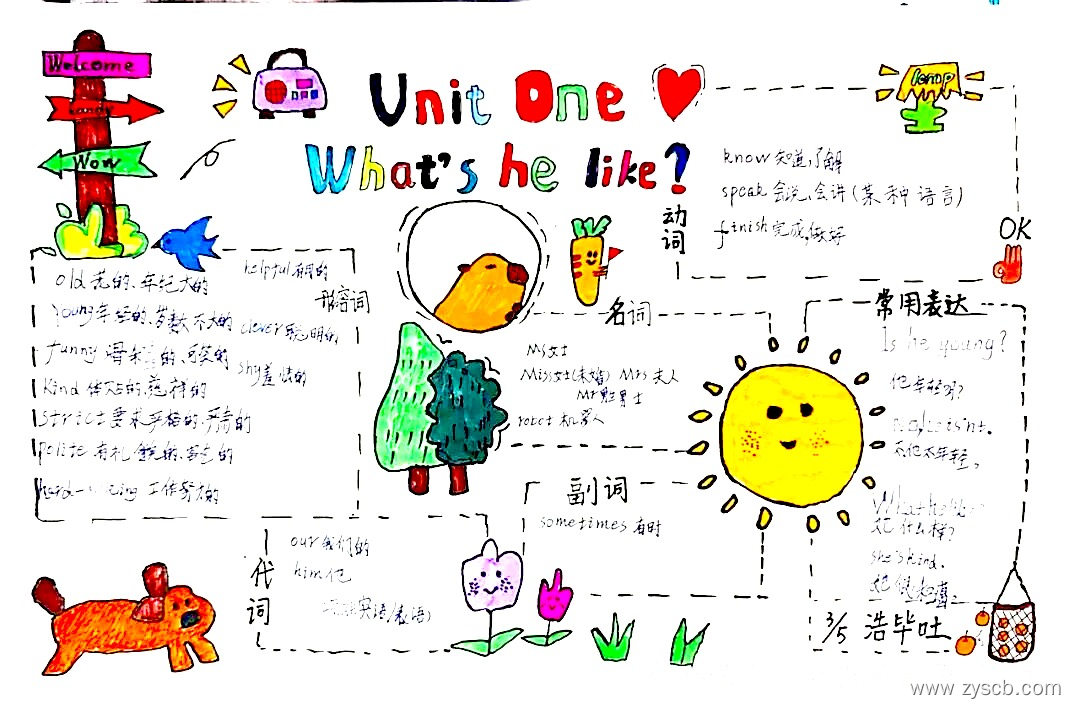 Welcome
Wow
Unit One
What's he like?
lamp
动词
know 知道,了解
speak 会说,会讲(某种语言)
finish 完成,做好
OK
形容词
old 老的、年纪大的
young 年轻的、岁数不大的
funny 滑稽的、可笑的
kind 体贴的、慈祥的
strict 要求严格的、严厉的
polite 有礼貌的、客气的
工作努力的
helpful 有用的
clever 聪明的
shy 羞怯的
名词
Ms 女士
Miss 女士(未婚) Mrs 夫人
Mr
robot 机器人
副词
sometimes 有时
代词
our 我们的
him 他
常用表达
Is he young?
他年轻吗?
不,他不年轻。
她什么样?
she's kind.
3/5
www.zyscb.com